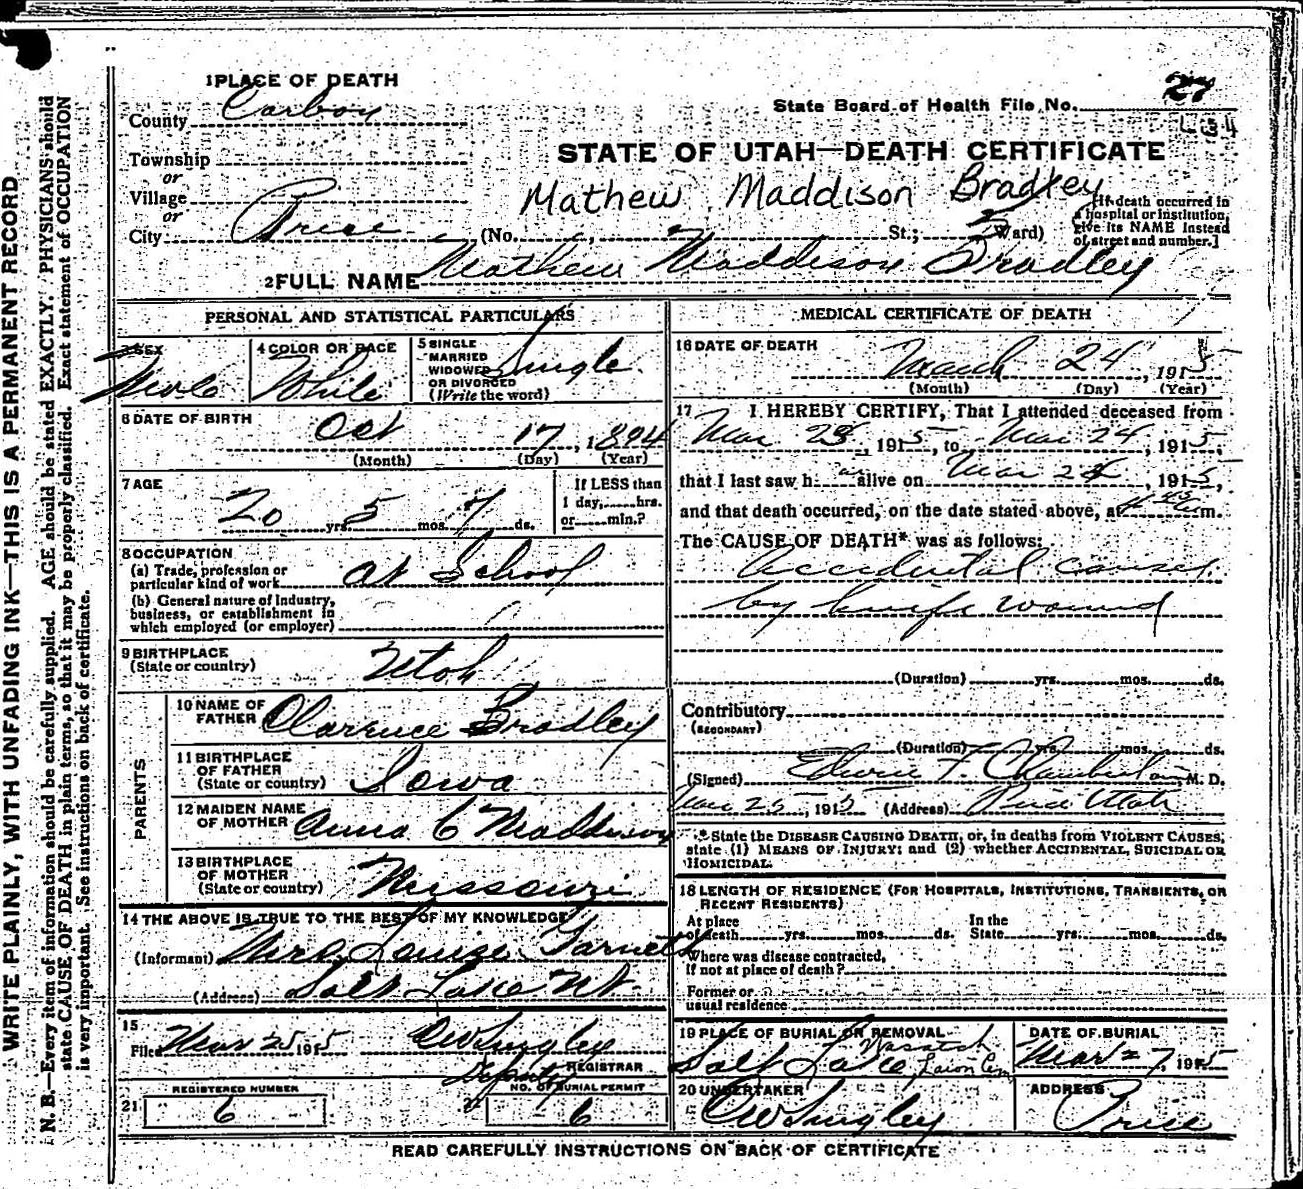 1 PLACE OF DEATH
County Carbon
Township
or
Village
or
City Price (No. , St.; Ward)
State Board of Health File No. 27
STATE OF UTAH—DEATH CERTIFICATE
Mathew Maddison Bradley
[If death occurred in
a hospital or institution,
give its NAME instead
of street and number.]
2 FULL NAME Mathew Maddison Bradley
PERSONAL AND STATISTICAL PARTICULARS
3 SEX
Male
4 COLOR OR RACE
White
5 SINGLE
MARRIED
WIDOWED
OR DIVORCED
(Write the word)
Single
6 DATE OF BIRTH
Oct 17, 1894
(Month) (Day) (Year)
7 AGE
20 yrs. 5 mos. 7 ds.
If LESS than
1 day,......hrs.
or......min.?
8 OCCUPATION
(a) Trade, profession or
particular kind of work At School
(b) General nature of industry,
business, or establishment in
which employed (or employer)
9 BIRTHPLACE
(State or country) Utah
PARENTS
10 NAME OF
FATHER Clarence Bradley
11 BIRTHPLACE
OF FATHER
(State or country) Iowa
12 MAIDEN NAME
OF MOTHER Anna C Maddison
13 BIRTHPLACE
OF MOTHER
(State or country) Missouri
14 THE ABOVE IS TRUE TO THE BEST OF MY KNOWLEDGE
(Informant) Mrs Louise Garnett
(Address) Salt Lake Ut.
15
Filed Mar 25 1915 Deputy REGISTRAR
REGISTERED NUMBER
21 6
NO. OF BURIAL PERMIT
6
MEDICAL CERTIFICATE OF DEATH
16 DATE OF DEATH
March 24, 1915
(Month) (Day) (Year)
17 I HEREBY CERTIFY, That I attended deceased from
Mar, 1915, to Mar 24, 1915,
that I last saw h alive on Mar 24, 1915,
and that death occurred, on the date stated above, at m.
The CAUSE OF DEATH* was as follows:
Accidental causes
by knife wound
(Duration) yrs. mos. ds.
Contributory
(SECONDARY)
(Duration) yrs. mos. ds.
(Signed) Edwin F. Chamberlain, M. D.
Mar 25, 1915 (Address) Price Utah
* State the DISEASE CAUSING DEATH, or, in deaths from VIOLENT CAUSES,
state (1) MEANS OF INJURY; and (2) whether ACCIDENTAL, SUICIDAL OR
HOMICIDAL.
18 LENGTH OF RESIDENCE (FOR HOSPITALS, INSTITUTIONS, TRANSIENTS, OR
RECENT RESIDENTS)
At place In the
of death yrs. mos. ds. State yrs. mos. ds.
Where was disease contracted,
if not at place of death?
Former or
usual residence
19 PLACE OF BURIAL OR REMOVAL
Wasatch
Salt Lake Lawn Cem
DATE OF BURIAL
Mar 27, 1915
20 UNDERTAKER
ADDRESS
Price
READ CAREFULLY INSTRUCTIONS ON BACK OF CERTIFICATE
WRITE PLAINLY, WITH UNFADING INK—THIS IS A PERMANENT RECORD
N. B.—Every item of information should be carefully supplied. AGE should be stated EXACTLY. PHYSICIANS should
state CAUSE OF DEATH in plain terms, so that it may be properly classified. Exact statement of OCCUPATION
is very important. See instructions on back of certificate.